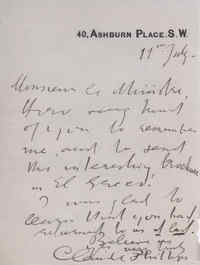 40, ASHBURN PLACE. S.W.
11th July.
Monsieur le Ministre,
How very kind
of you to remember
me and to send
this interesting brochure
on El Greco.
I was glad to
learn that you had
returned to us at last.
Believe me
very truly
Claude Phillips